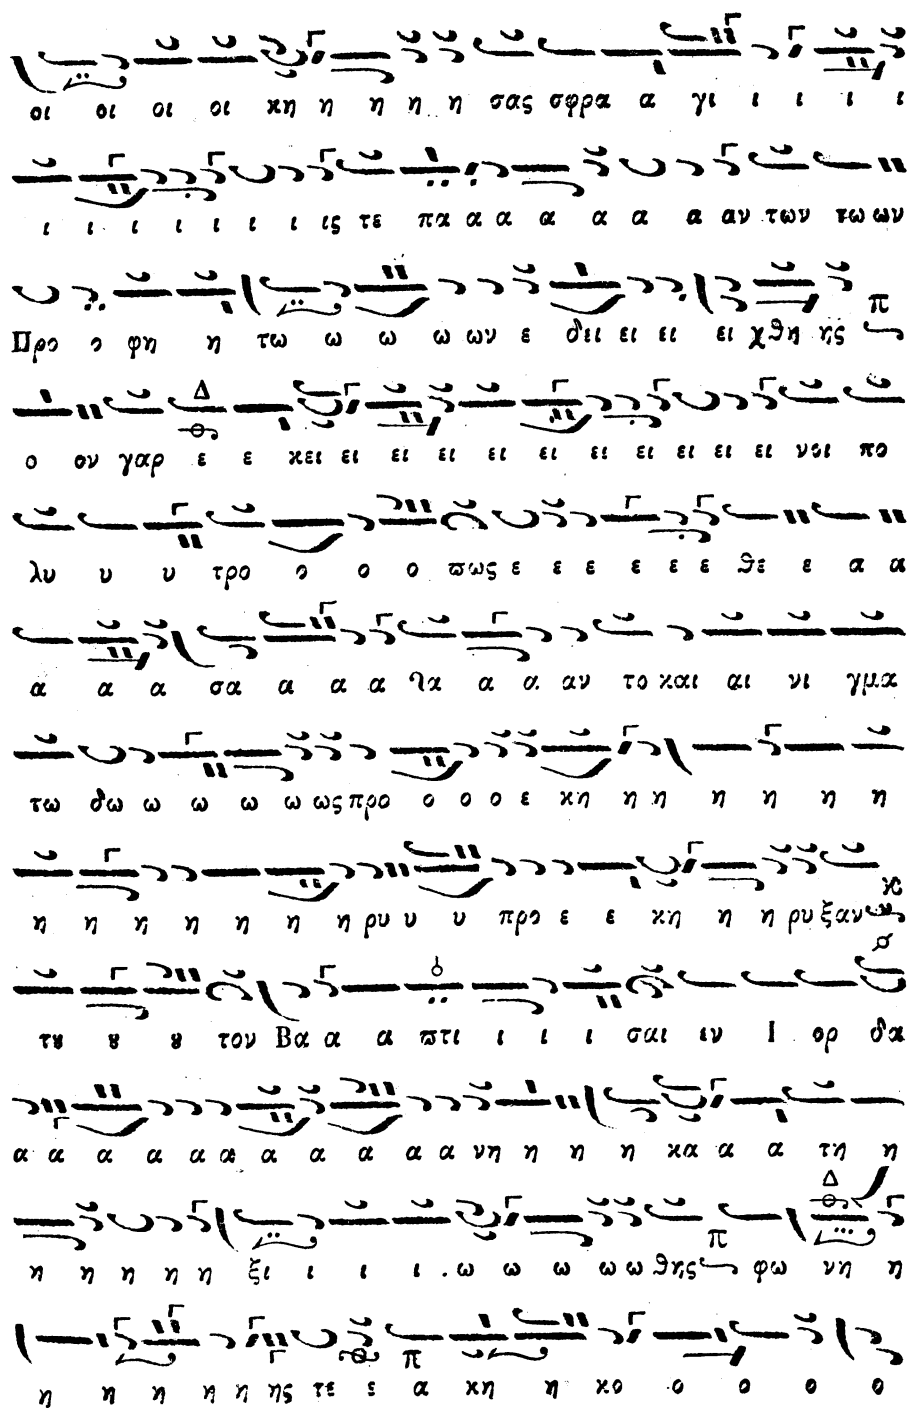 οι οι οι οι κη η η η η σας σφρα α γι ι ι ι ι
ι ι ι ι ι ι ι ις τε πα α α α α α α αν των τω ων
Προ ο φη η τω ω ω ω ων ε δει ει ει ει χθη ης π
ο ον γαρ ε ε κει ει ει ει ει ει ει ει ει ει ει νοι πο
λυ υ υ τρο ο ο ο πως ε ε ε ε ε ε θε ε α α
α α α σα α α α λα α α αν το και αι νι γμα
τω δω ω ω ω ω ως προ ο ο ο ε κη η η η η η η
η η η η η η η ρυ υ υ προ ε ε κη η η ρυ ξαν
τȣ ȣ ȣ τον Βα α α πτι ι ι ι σαι εν Ι ορ δα
α α α α α α α α α α α νη η η η κα α α τη η
η η η η η ξι ι ι ι ω ω ω ω ω θης π φω νη η
η η η η η ης τε ε α π κη η κο ο ο ο ο